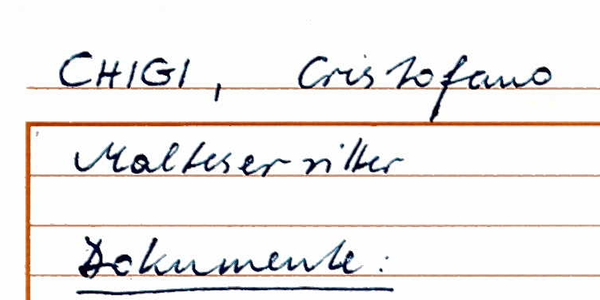 CHIGI, Cristofano
Malteserritter
Dokumente: